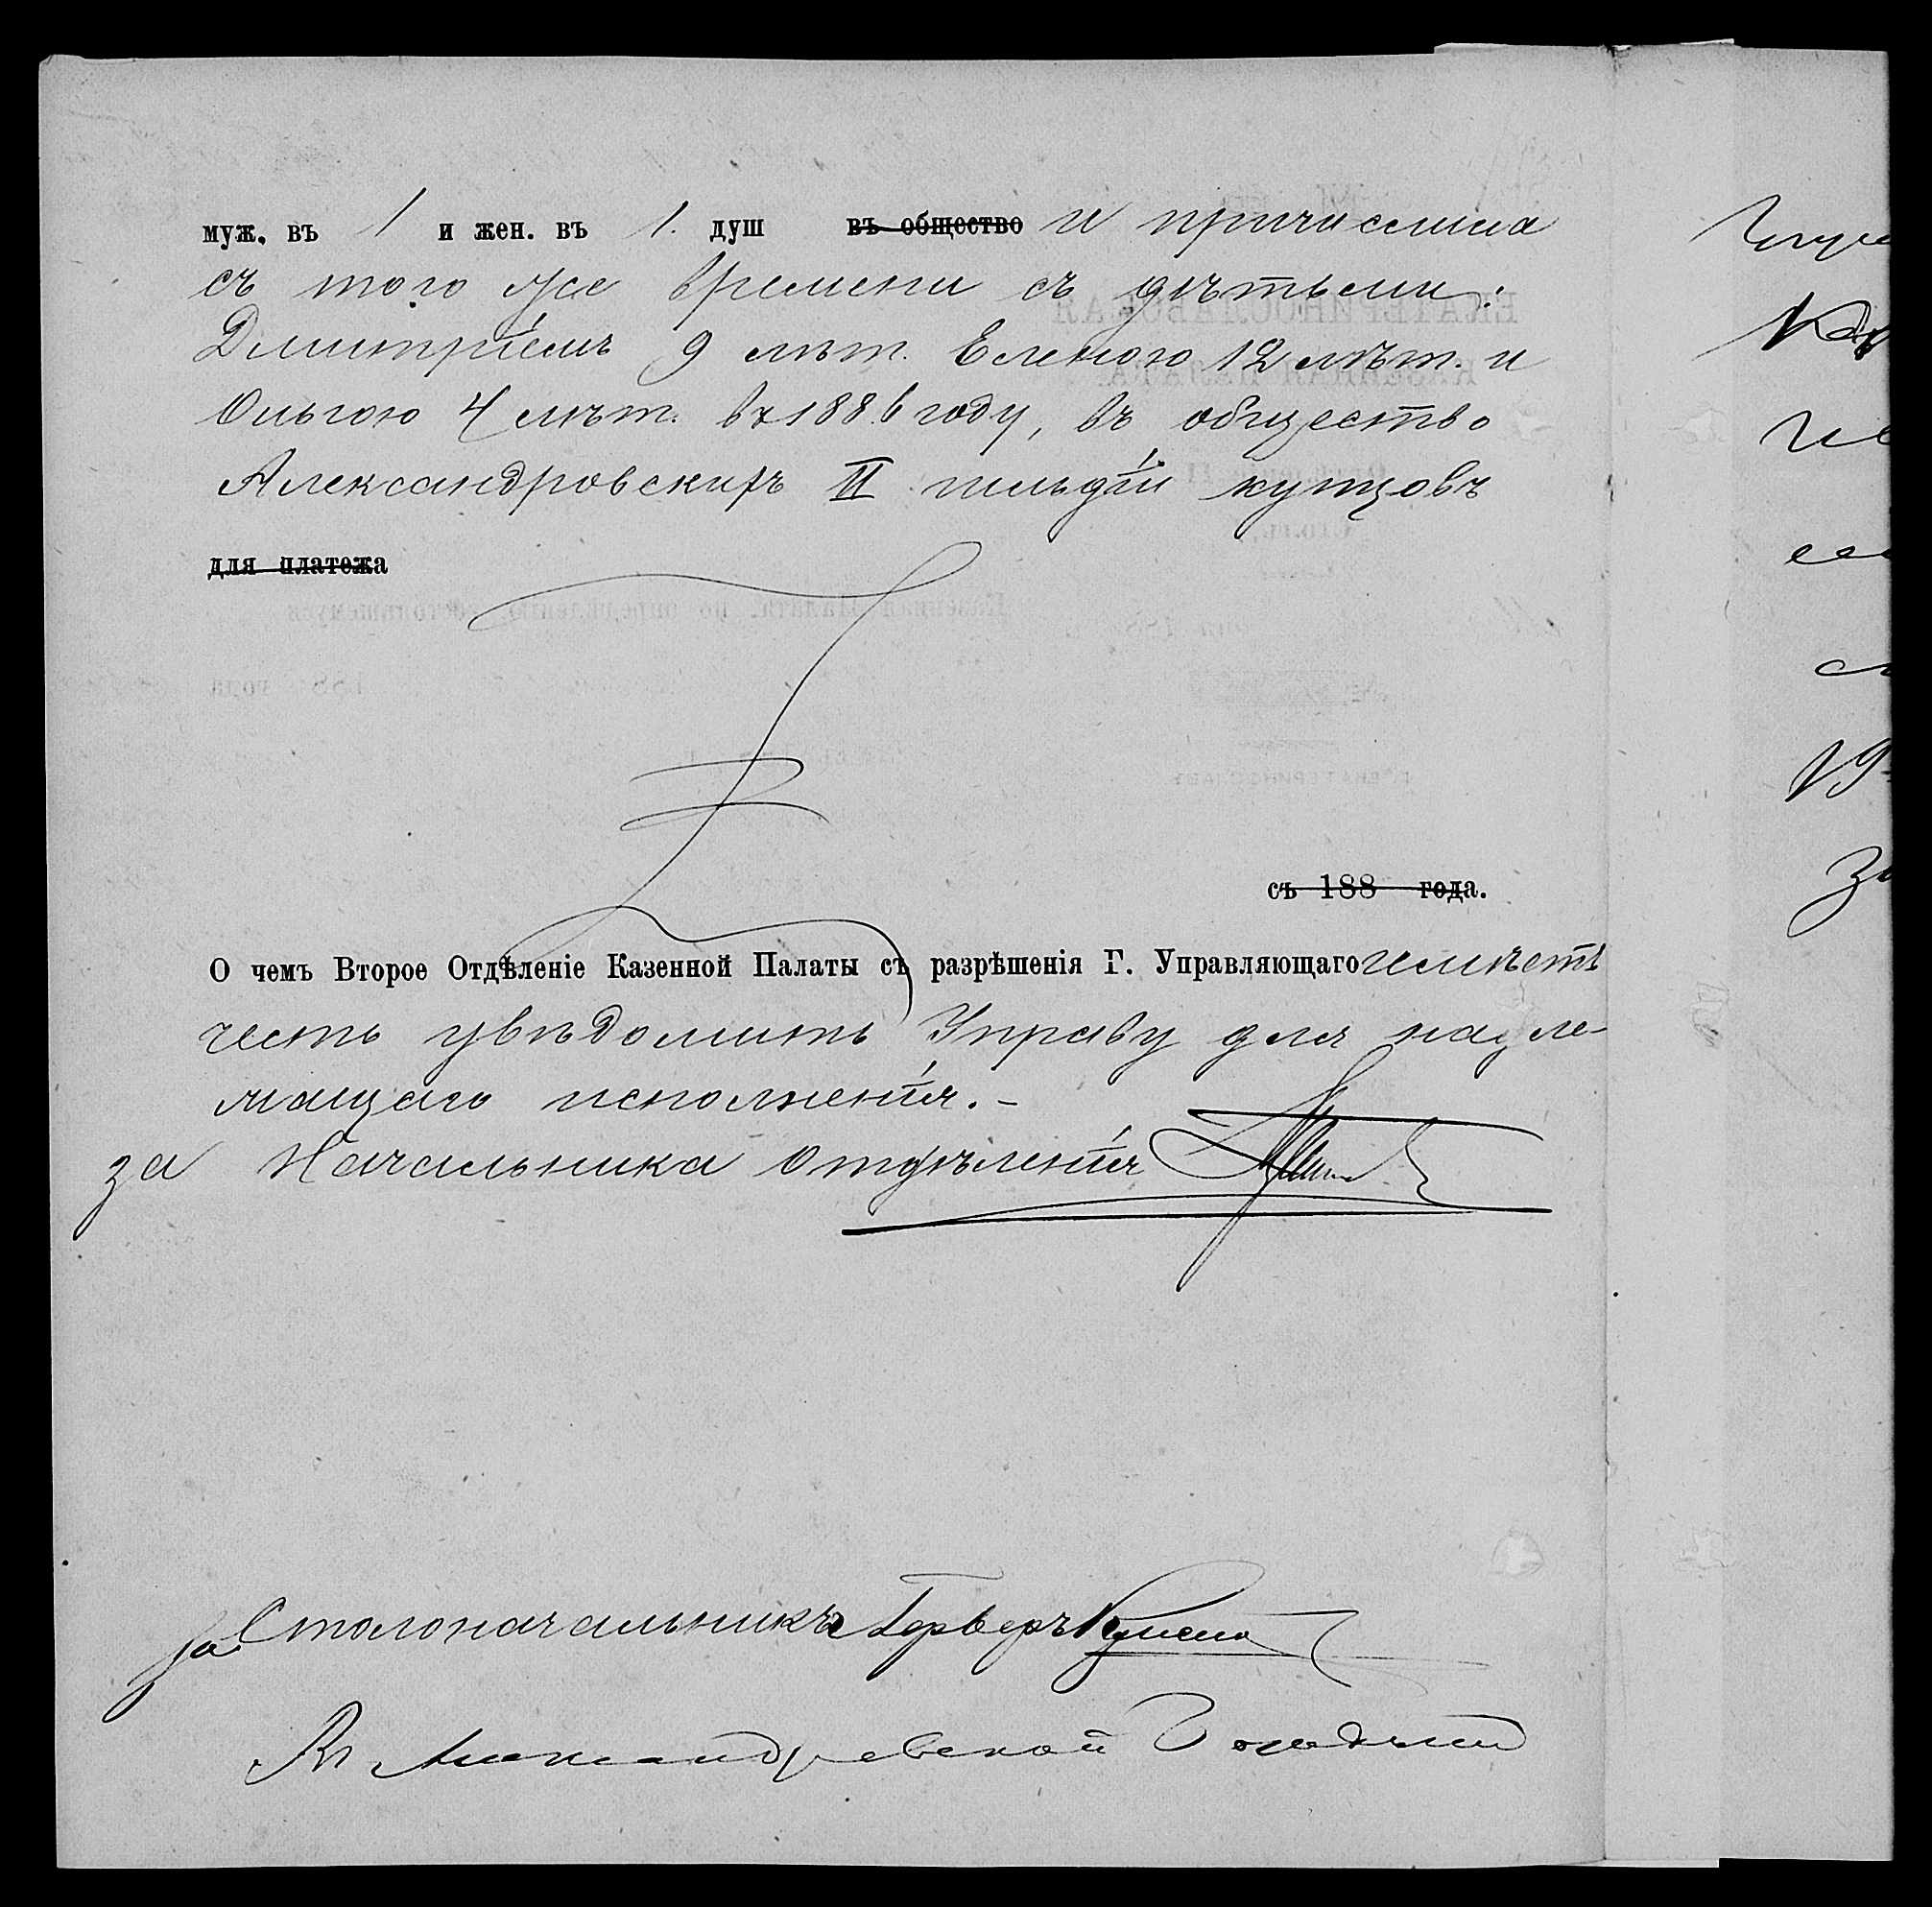 муж. въ 1 и жен. въ 1. душ въ общество и причислена
съ того же времени съ дѣтьми:
Дмитріемъ 9 лѣт. Еленою 12 лѣт. и
Ольгою 4 лѣт. въ 1886 году, въ общество
Александровскихъ II гильдіи купцовъ
для платежа
съ 188 года.
О чемъ Второе Отдѣленіе Казенной Палаты съ разрѣшенія Г. Управляющаго имѣетъ
честь увѣдомить Управу для надле-
жащаго исполненія.-
за Начальника Отдѣленія
за Столоначальника
Александровской